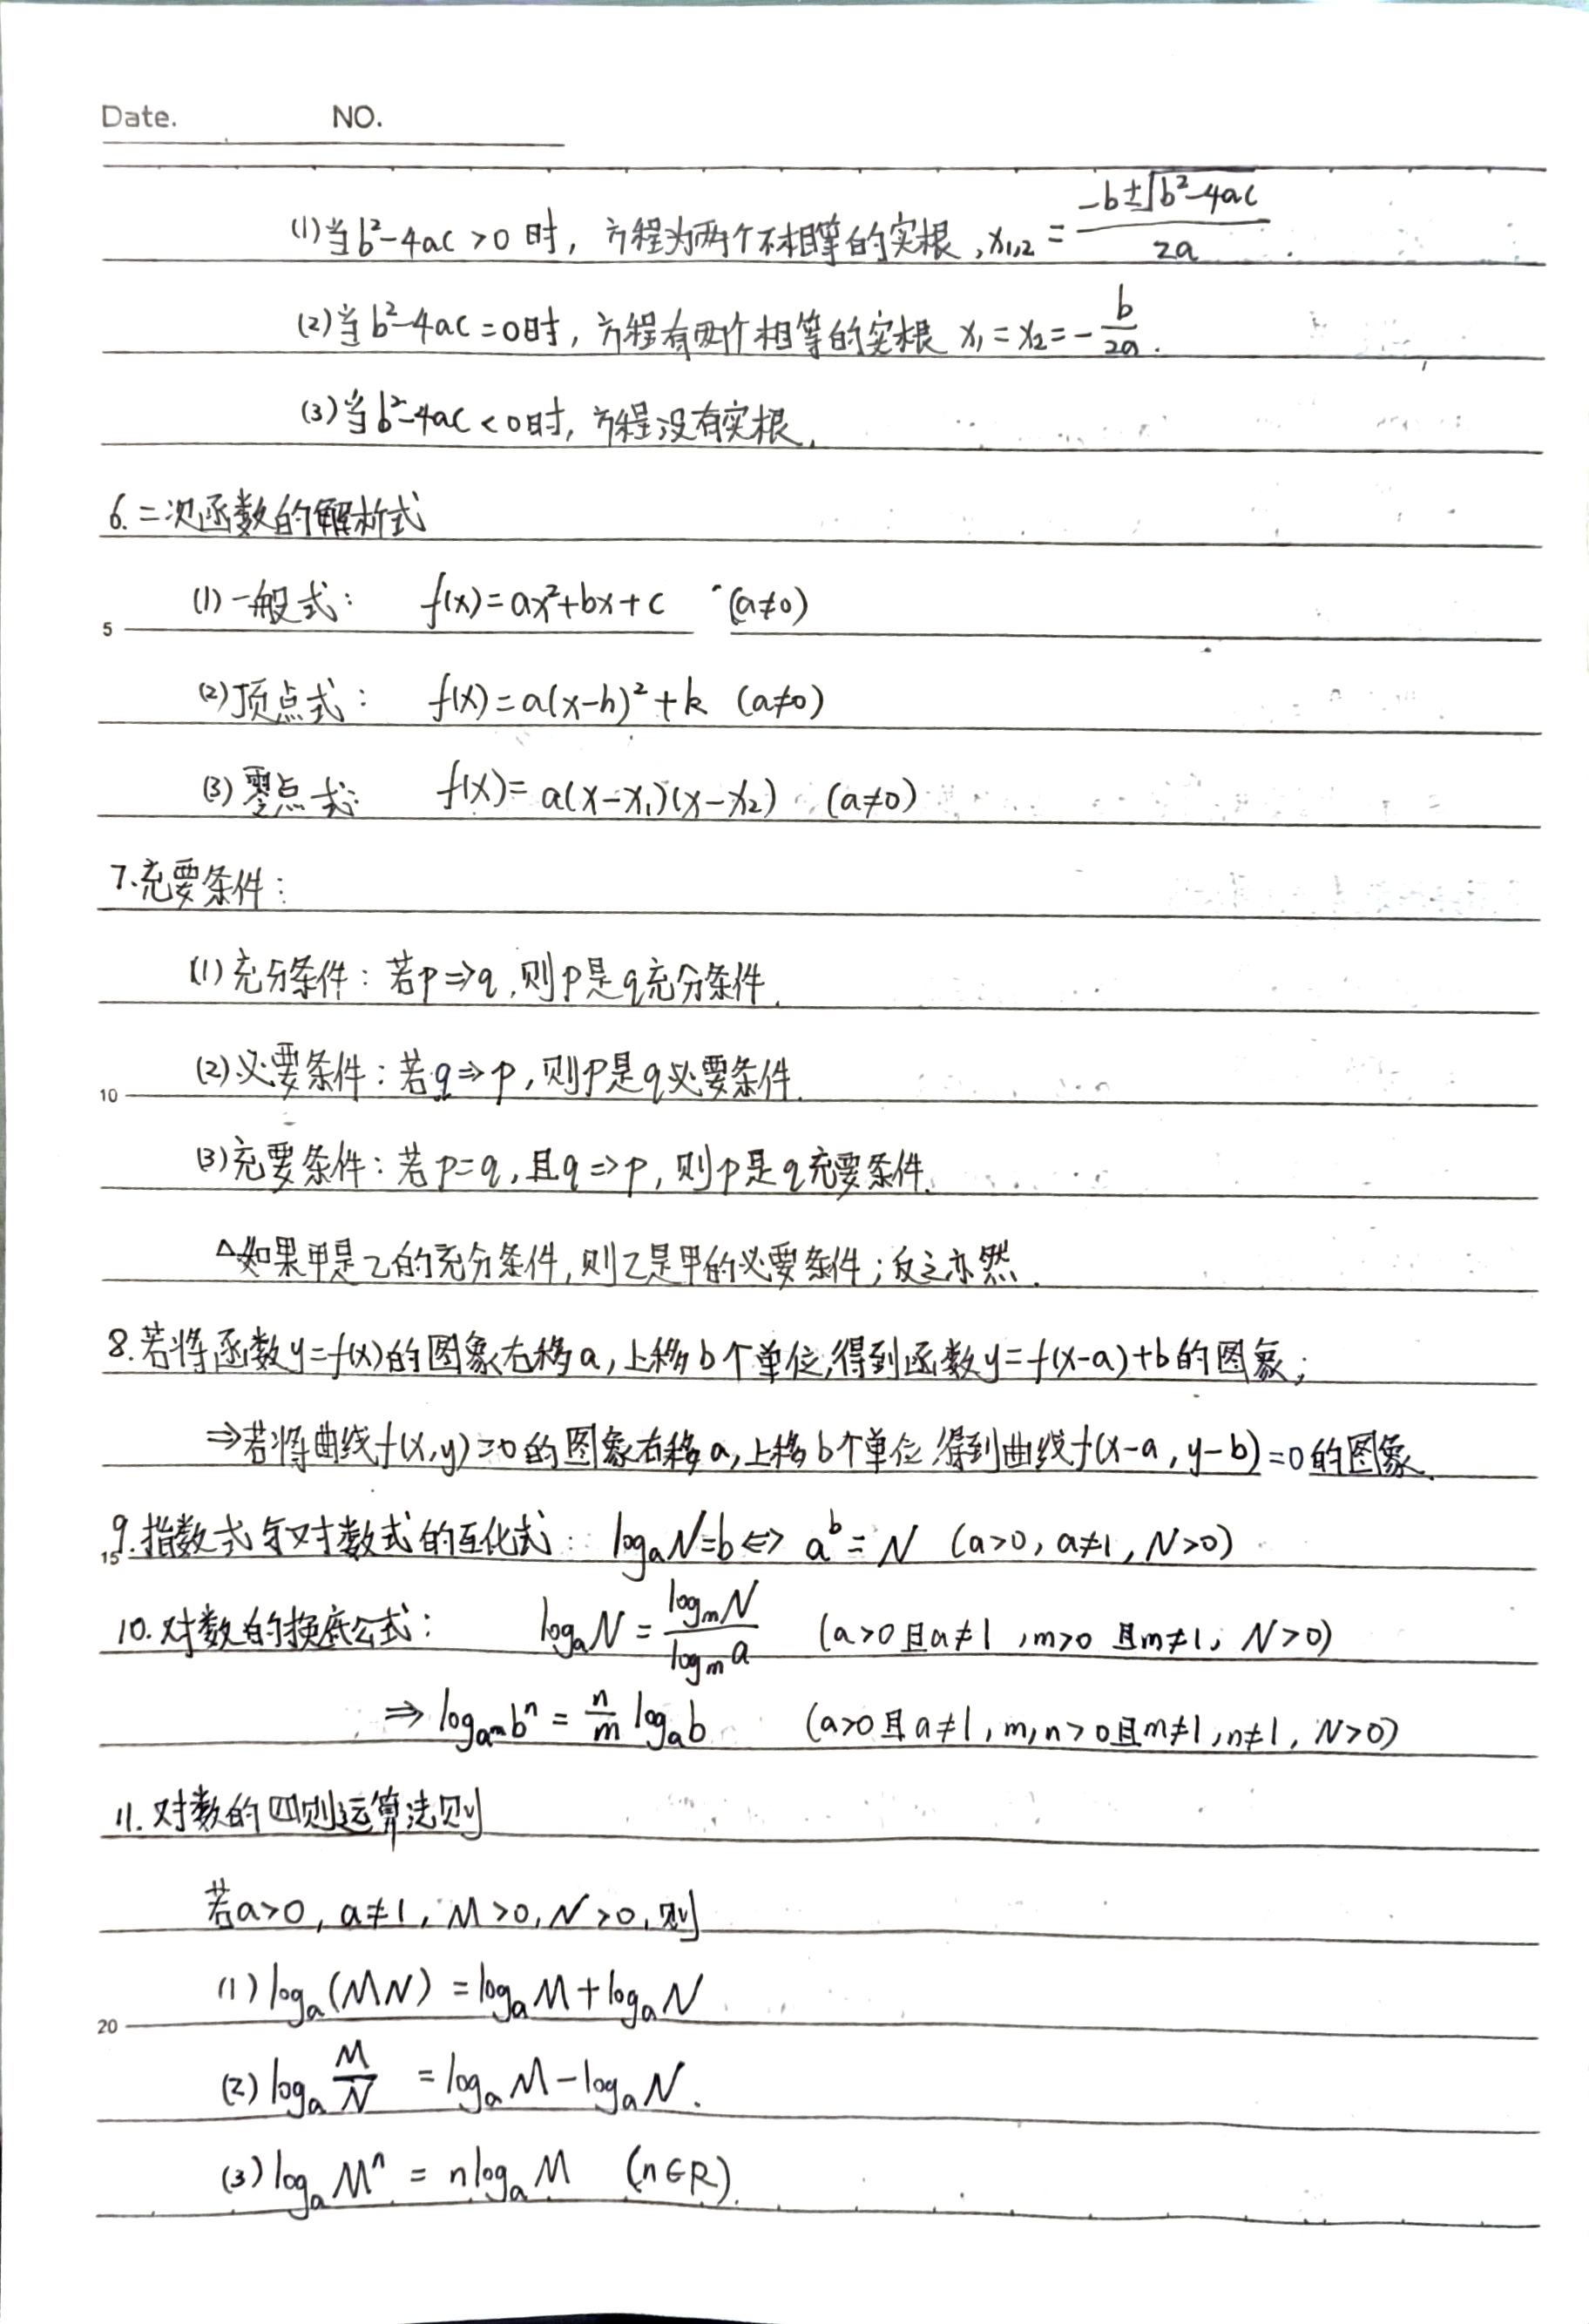 Date. NO.
(1)当b²-4ac>0时，方程为两个不相等的实根，x₁,₂=(-b±√(b²-4ac))/2a.
(2)当b²-4ac=0时，方程有两个相等的实根 x₁=x₂=-b/2a.
(3)当b²-4ac<0时，方程没有实根.
6.二次函数的解析式
5 (1)一般式： f(x)=ax²+bx+c (a≠0)
(2)顶点式： f(x)=a(x-h)²+k (a≠0)
(3)零点式： f(x)=a(x-x₁)(x-x₂) (a≠0)
7.充要条件：
(1)充分条件：若p⇒q，则p是q充分条件.
10 (2)必要条件：若q⇒p，则p是q必要条件.
(3)充要条件：若p=q，且q=>p，则p是q充要条件.
△如果甲是乙的充分条件，则乙是甲的必要条件；反之亦然.
8.若将函数y=f(x)的图象右移a，上移b个单位，得到函数y=f(x-a)+b的图象；
⇒若将曲线f(x,y)=0的图象右移a，上移b个单位，得到曲线f(x-a,y-b)=0的图象.
15 9.指数式与对数式的互化式： logₐN=b⇔aᵇ=N (a>0, a≠1, N>0)
10.对数的换底公式： logₐN=logₘN/logₘa (a>0且a≠1, m>0且m≠1, N>0)
⇒log_{a^m}bⁿ=n/m logₐb (a>0且a≠1, m,n>0且m≠1, n≠1, N>0)
11.对数的四则运算法则
若a>0, a≠1, M>0, N>0, 则
20 (1)logₐ(MN)=logₐM+logₐN
(2)logₐ M/N =logₐM-logₐN.
(3)logₐMⁿ=nlogₐM (n∈R).